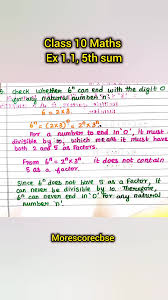 Class 10 Maths
Ex 1.1, 5th sum
check whether 6ⁿ can end with the digit 0
for any natural number 'n'.
6 = 2×3
6ⁿ = (2×3)ⁿ = 2ⁿ×3ⁿ
For a number to end in '0', it must
divisible by 10, which means it must have
both 2 and 5 as factors.
From 6ⁿ = 2ⁿ×3ⁿ, it does not contain
5 as a factor.
Since 6ⁿ does not have 5 as a factor, it
can never be divisible by 10. Therefore,
6ⁿ can never end in '0' for any natural
number 'n'.
Morescorecbse